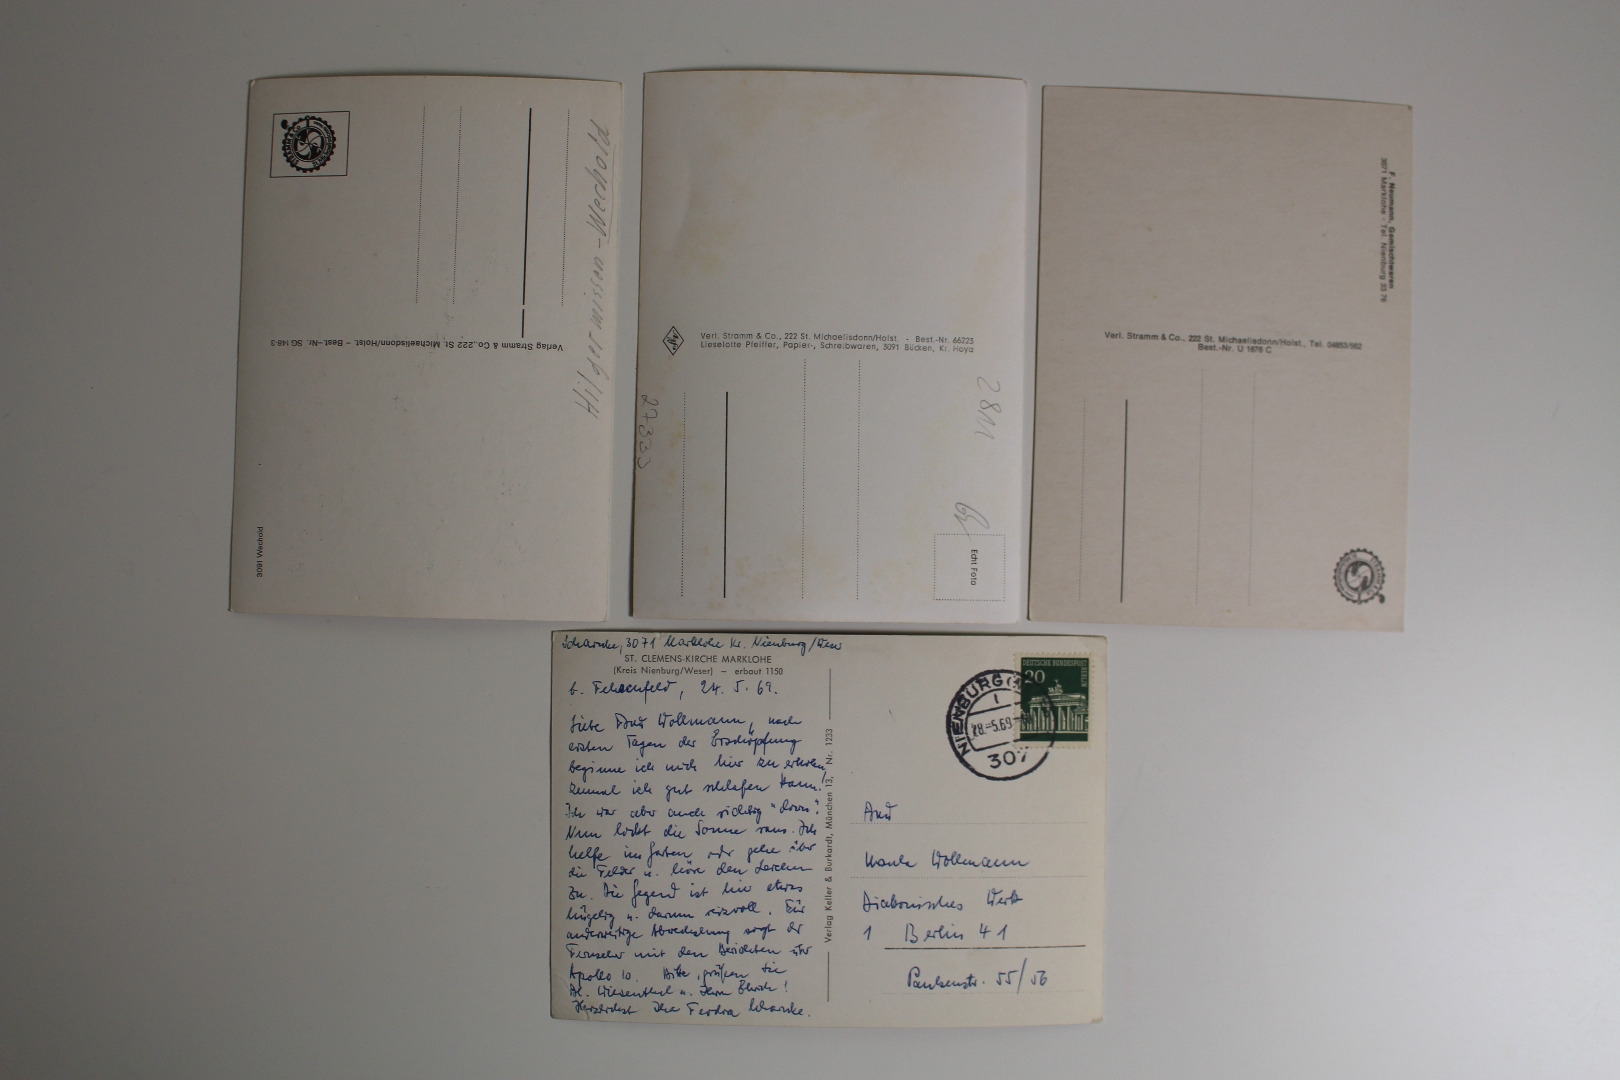 Hilgermissen-Wechold
Verlag Stramm & Co., 222 St. Michaelisdonn/Holst. – Best.-Nr. SG 148-3
3091 Wechold
Verl. Stramm & Co., 222 St. Michaelisdonn/Holst. - Best.-Nr. 66223
Lieselotte Pfeiffer, Papier-, Schreibwaren, 3091 Bücken, Kr. Hoya
27333
2811
Echt Foto
F. Neumann, Gemischtwaren
3071 Marklohe - Tel. Nienburg 33 76
Verl. Stramm & Co., 222 St. Michaelisdonn/Holst., Tel. 04853/562
Best.-Nr. U 1676 C
Scharnke, 3071 Marklohe Kr. Nienburg/Weser
ST. CLEMENS-KIRCHE MARKLOHE
(Kreis Nienburg/Weser) – erbaut 1150
b. Fehsenfeld, 24. 5. 69.
Liebe Frau Wollmann, nach
ersten Tagen der Erschöpfung
beginne ich mich hier zu erholen,
zumal ich gut schlafen kann!
Ich war aber auch richtig "down".
Nun lockt die Sonne raus. Ich
helfe im Garten oder gehe über
die Felder u. höre den Lerchen
zu. Die Gegend ist hier etwas
hügelig u. darum reizvoll. Für
anderweitige Abwechslung sorgt der
Fernseher mit den Berichten über
Apollo 10. Bitte, grüßen Sie
Wiesenthal u. Herrn
Herzlichst Ihre Scharnke.
Verlag Keller & Burkardt, München 13, Nr. 1233
DEUTSCHE BUNDESPOST
BERLIN
20
NIENBURG
28.-5.69
307
Frau
Wollmann
Diakonisches Werk
1 Berlin 41
Paulsenstr. 55/56